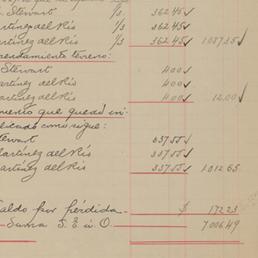 Stewart 1/3 362.45
Martínez del Río 1/3 362.45
Martínez del Río 1/3 362.45 1087.35
arrendamiento terreno:
Stewart 400
Martínez del Río 400
Martínez del Río 400 12.00
que quedó in
dicado como sigue:
Stewart 337.55
Martínez del Río 337.55
Martínez del Río 337.55 1012.65
Saldo por pérdida $ 172.23
Suma S. E. ú O. 7006.49